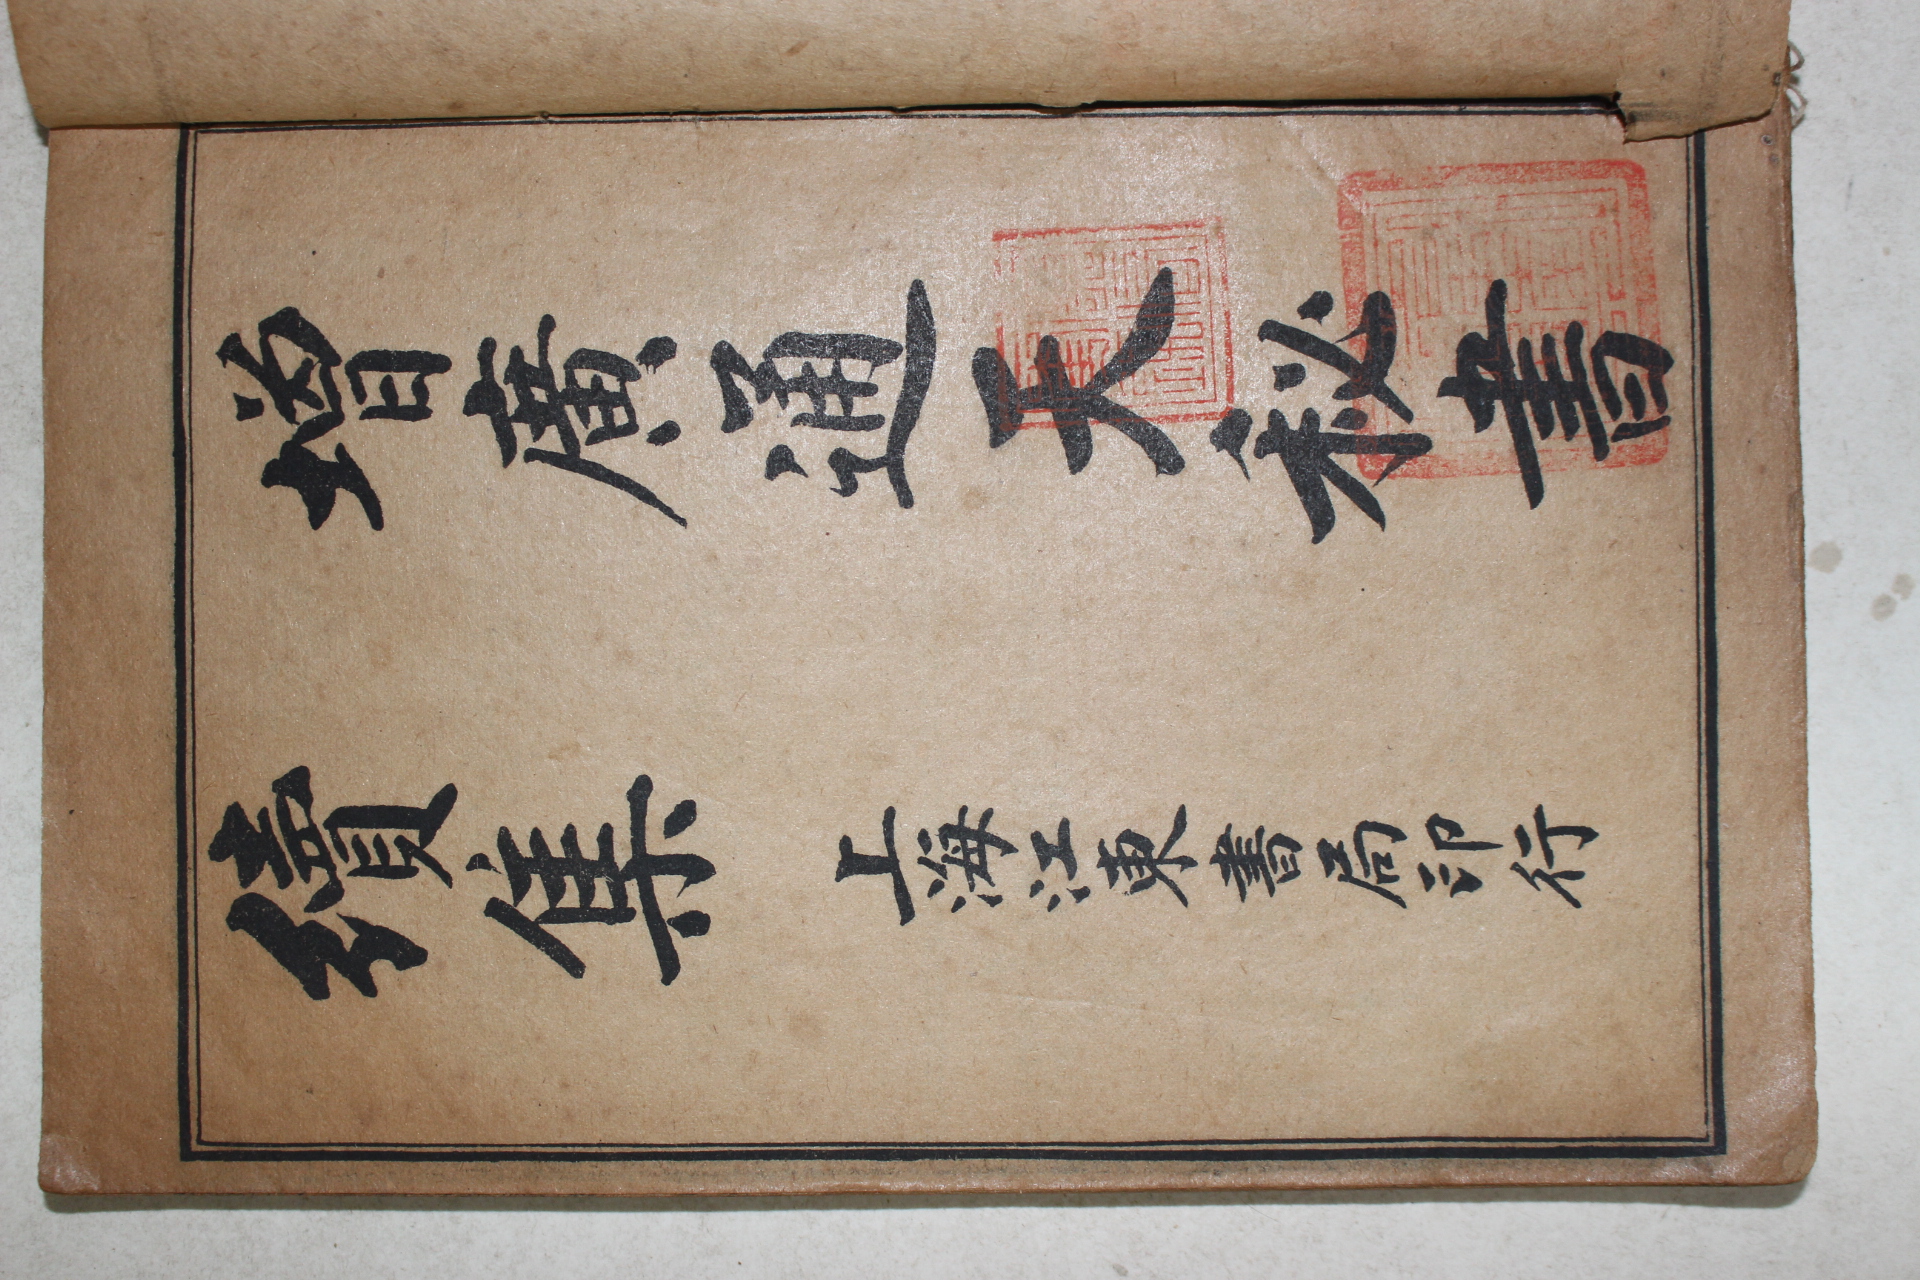 增廣通天秘書
續集
上海江東書局印行